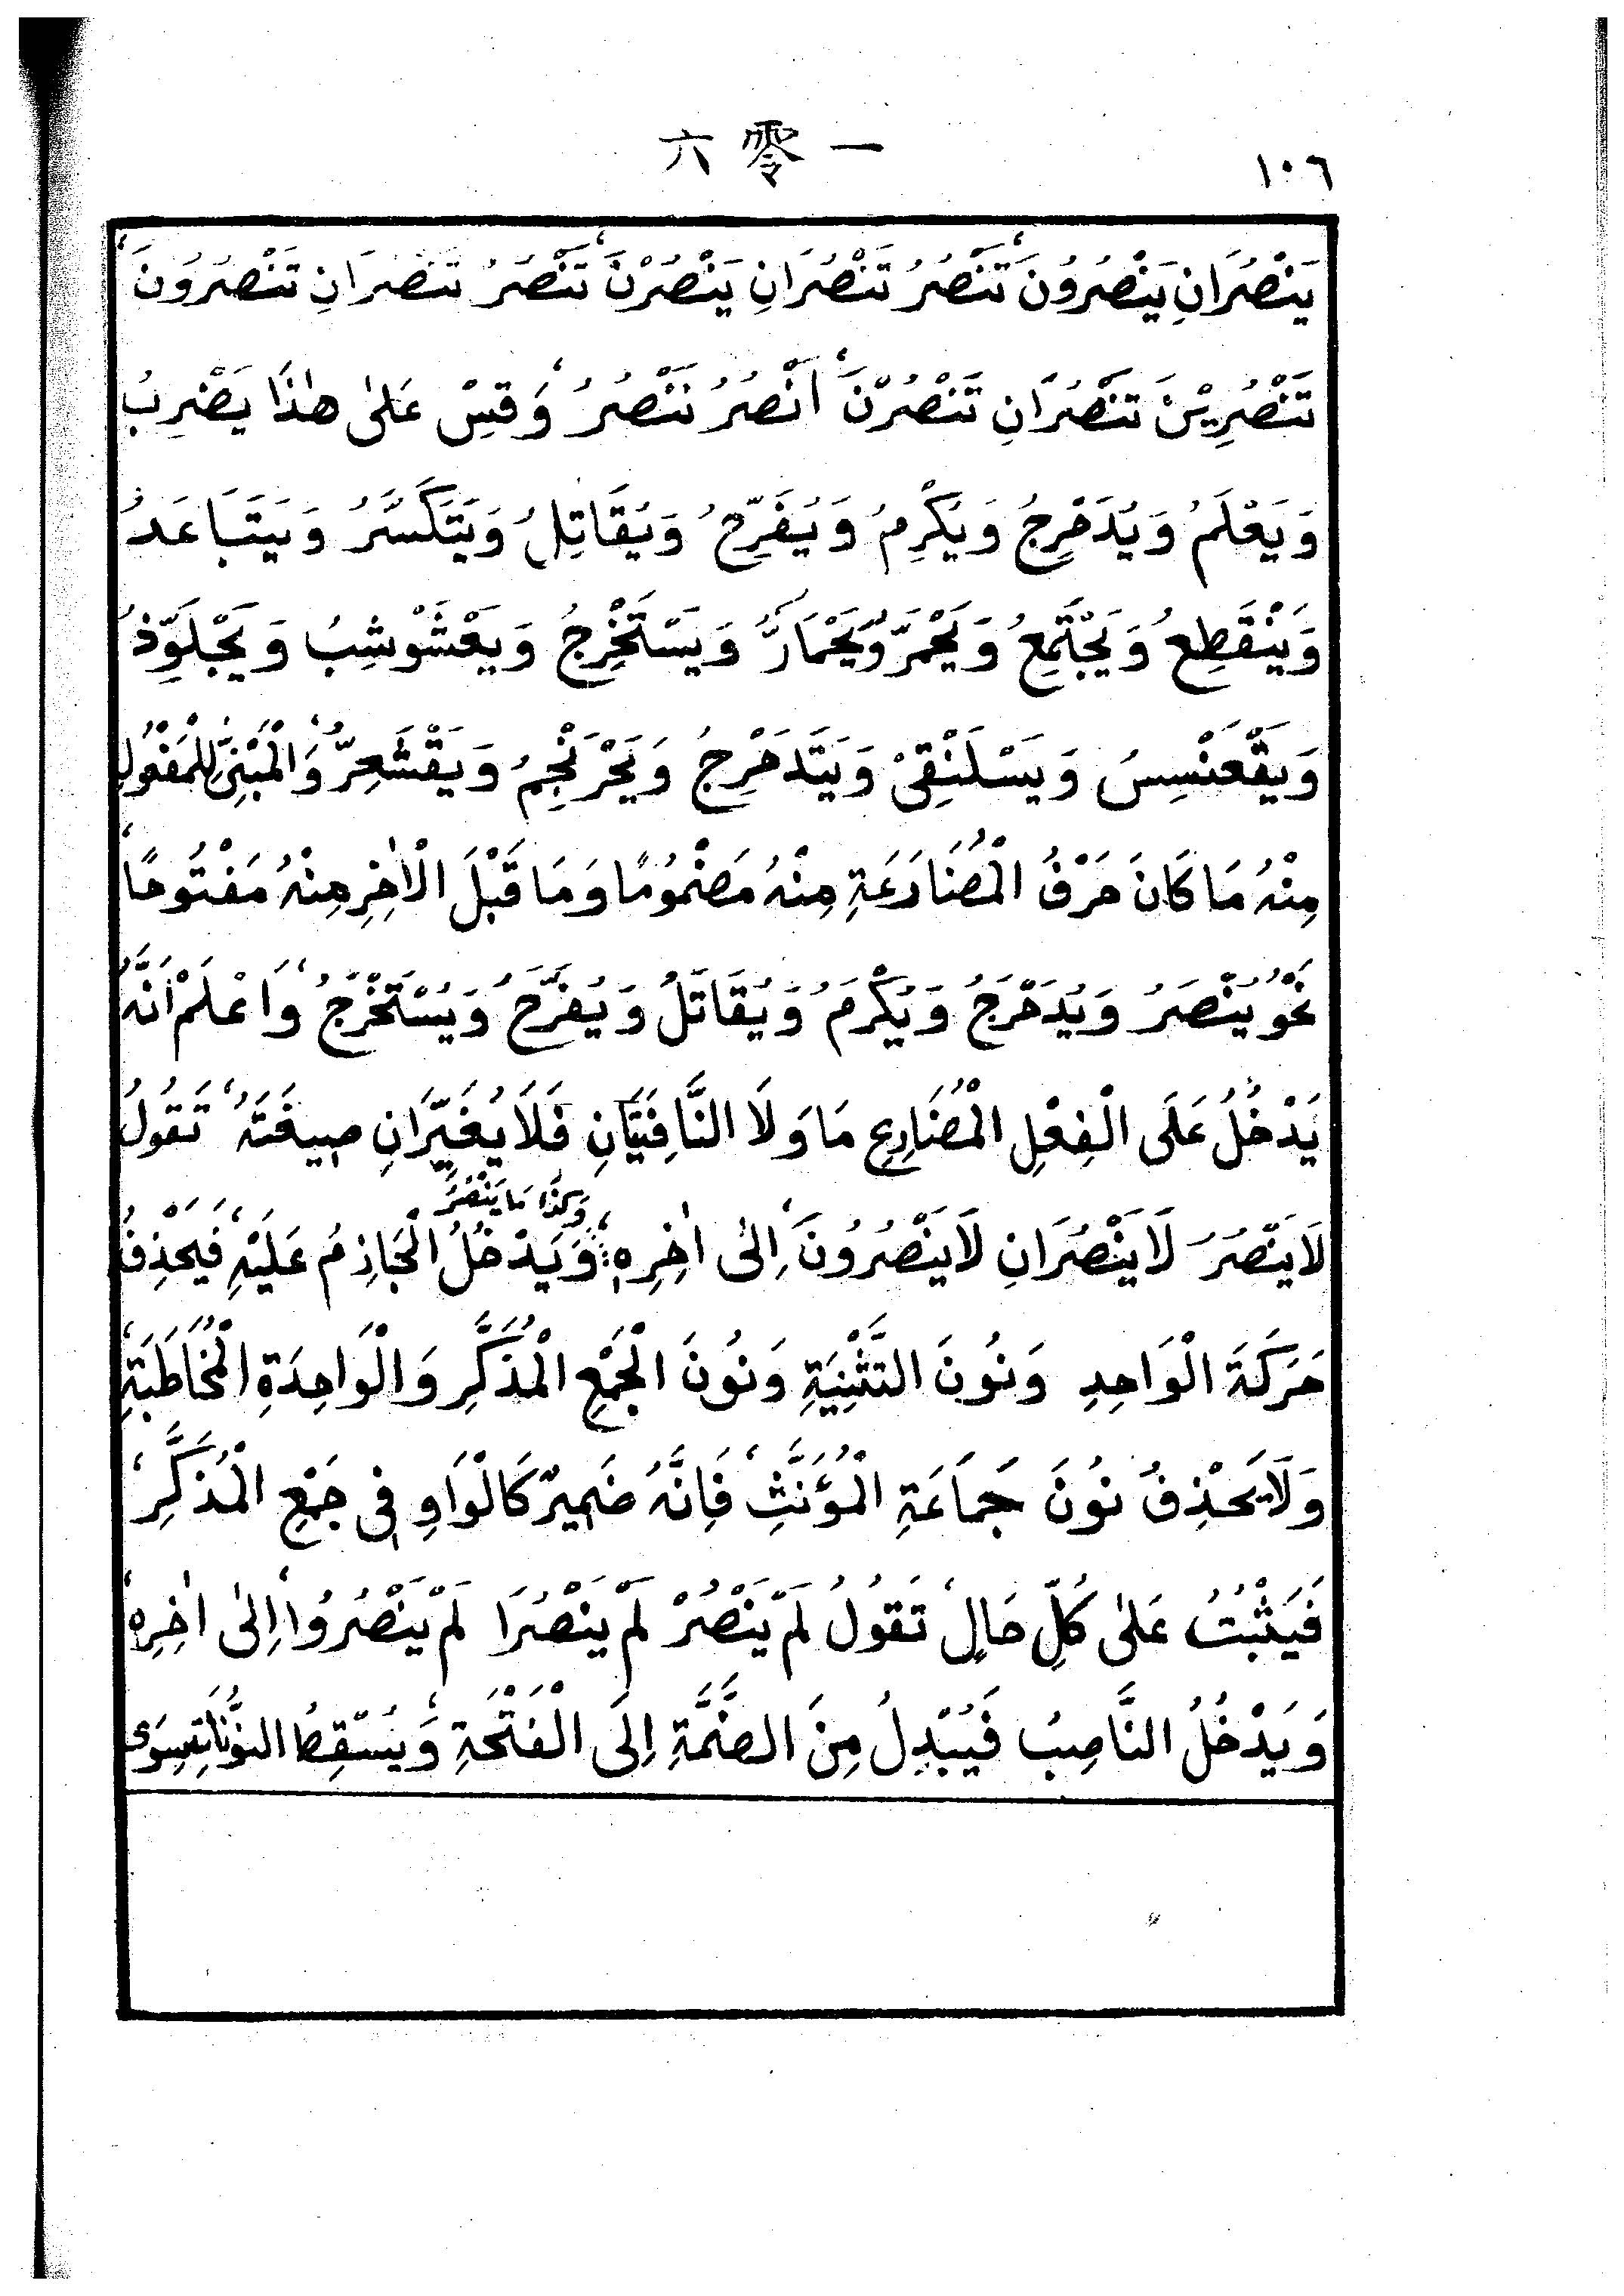 六零一
١٠٦
يَنْصُرَانِ يَنْصُرُونَ، تَنْصُرُ تَنْصُرَانِ يَنْصُرْنَ، تَنْصُرُ تَنْصُرَانِ تَنْصُرُونَ،
تَنْصُرِيْنَ تَنْصُرَانِ تَنْصُرْنَ، اَنْصُرُ نَنْصُرُ، وَقِسْ عَلىٰ هٰذَا يَضْرِبُ
وَيَعْلَمُ وَيُدَحْرِجُ وَيُكْرِمُ وَيُفَرِّحُ وَيُقَاتِلُ وَيَتَكَسَّرُ وَيَتَبَاعَدُ
وَيَنْقَطِعُ وَيَجْتَمِعُ وَيَحْمَرُّ وَيَحْمَارُّ وَيَسْتَخْرِجُ وَيَعْشَوْشِبُ وَيَجْلَوِّذُ
وَيَقْعَنْسِسُ وَيَسْلَنْقِىْ وَيَتَدَحْرَجُ وَيَحْرَنْجِمُ وَيَقْشَعِرُّ، وَالْمَبْنِىُّ لِلْمَفْعُولِ
مِنْهُ مَا كَانَ حَرْفُ الْمُضَارَعَةِ مِنْهُ مَضْمُومًا وَمَا قَبْلَ الْاٰخِرِ مِنْهُ مَفْتُوحًا،
نَحْوُ يُنْصَرُ وَيُدَحْرَجُ وَيُكْرَمُ وَيُقَاتَلُ وَيُفَرَّحُ وَيُسْتَخْرَجُ، وَاعْلَمْ اَنَّهُ
يَدْخُلُ عَلَى الْفِعْلِ الْمُضَارِعِ مَا وَلَا النَّافِيَتَانِ فَلَا يُغَيِّرَانِ صِيغَتَهُ، تَقُولُ
وَكَذَا مَا يَنْصُرُ
لَا يَنْصُرُ لَا يَنْصُرَانِ لَا يَنْصُرُونَ، اِلىٰ اٰخِرِهِ، وَيَدْخُلُ الْجَازِمُ عَلَيْهِ، فَيَحْذِفُ
حَرَكَةَ الْوَاحِدِ وَنُونَ التَّثْنِيَةِ وَنُونَ الْجَمْعِ الْمُذَكَّرِ وَالْوَاحِدَةِ الْمُخَاطَبَةِ،
وَلَا يَحْذِفُ نُونَ جَمَاعَةِ الْمُؤَنَّثِ، فَاِنَّهُ ضَمِيرٌ كَالْوَاوِ فِى جَمْعِ الْمُذَكَّرِ،
فَيَثْبُتُ عَلىٰ كُلِّ حَالٍ، تَقُولُ لَمْ يَنْصُرْ لَمْ يَنْصُرَا لَمْ يَنْصُرُوا، اِلىٰ اٰخِرِهِ،
وَيَدْخُلُ النَّاصِبُ فَيُبْدِلُ مِنَ الضَّمَّةِ اِلَى الْفَتْحَةِ، وَيُسْقِطُ النُّونَاتِ سِوَى